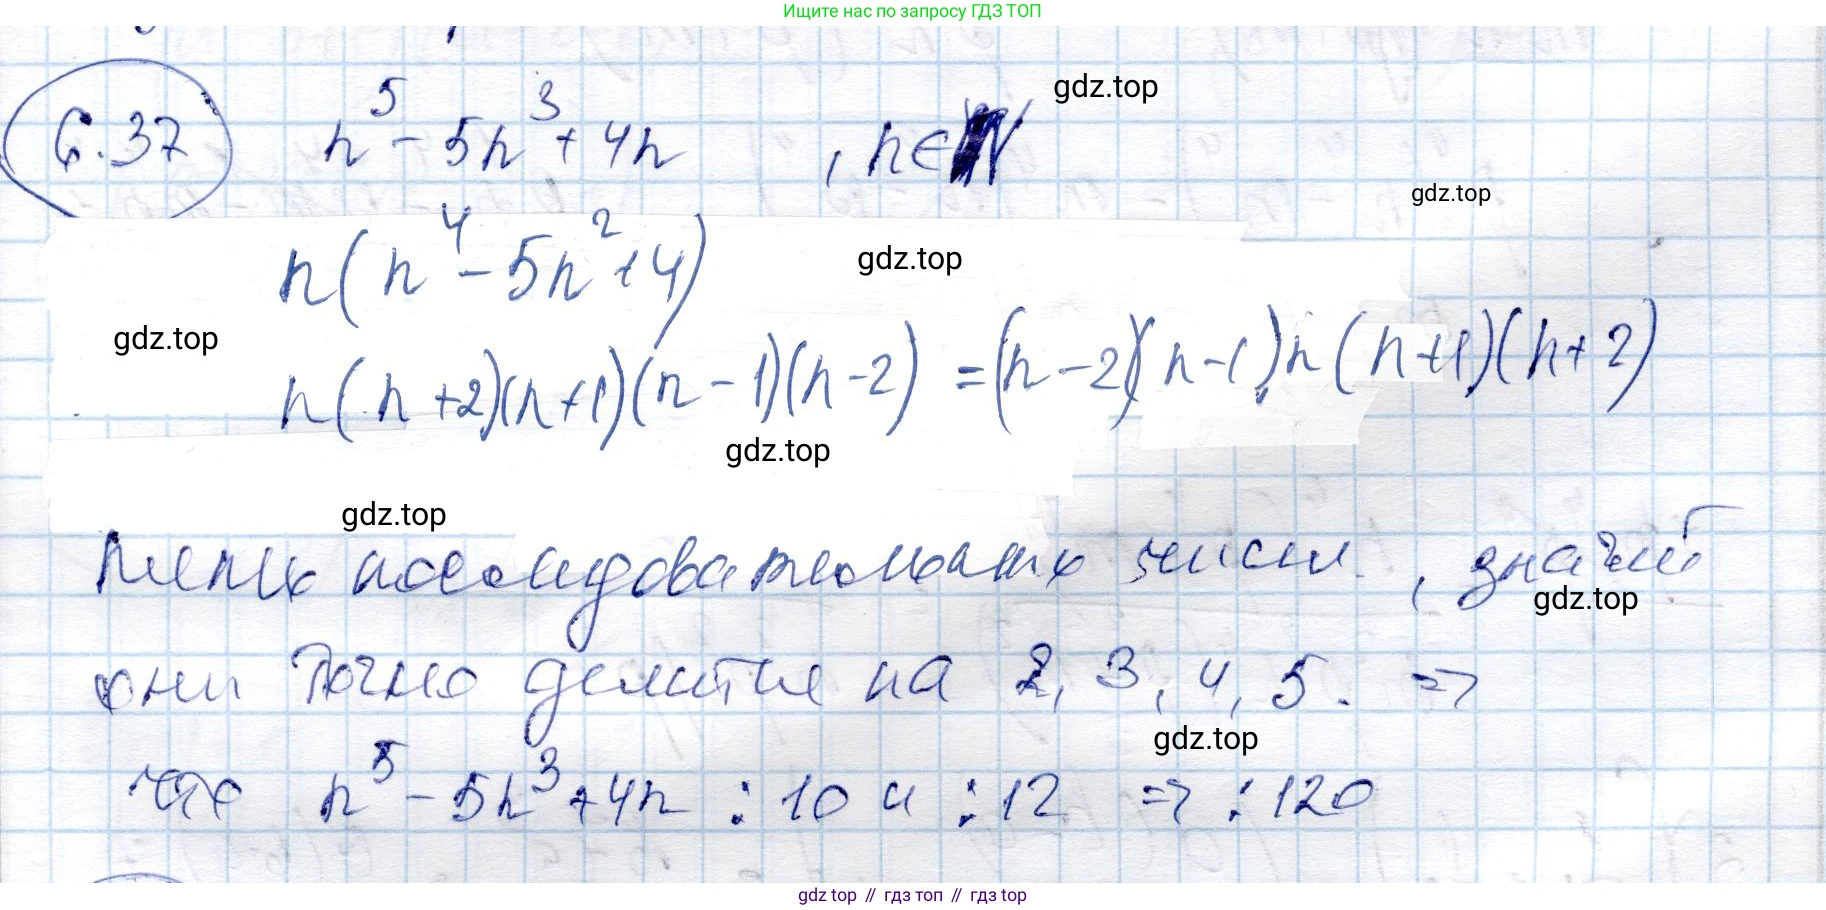 Ищите нас по запросу ГДЗ ТОП
6.37 n⁵ - 5n³ + 4n , n∈N
gdz.top
gdz.top
n(n⁴ - 5n² + 4)
gdz.top
gdz.top
n(n+2)(n+1)(n-1)(n-2) = (n-2)(n-1)n(n+1)(n+2)
gdz.top
gdz.top
пять последовательных чисел, значит
gdz.top
они точно делится на 2, 3, 4, 5. =>
gdz.top
что n⁵ - 5n³ + 4n ⋮ 10 и ⋮ 12 => ⋮ 120
gdz top // гдз топ // gdz top